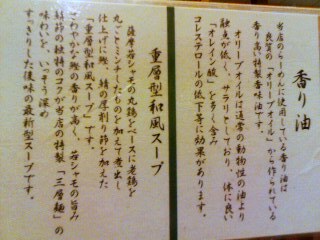 香り油
当店のらーめんに使用している香り油は
良質の「オリーブオイル」から作られている
香り高い特製香味油です。
オリーブオイルは通常の動物性の油より
融点が低い、サラリとしており、体に良い
「オレイン酸」を多く含み
コレステロールの低下等に効果があります。
重層型和風スープ
薩摩若シャモの丸鶏をベースに老鶏を
丸ごとミンチしたものを加えて煮出し
仕上げに鰹、鯖の厚削り節を加えた
「重層型和風スープ」です。
さわやかな魚の香りが高く、若シャモの旨み
鯖節の独特のコクが当店の特製「三層麺」の
味わいを、いっそう深め
すっきりした後味の最新型スープです。